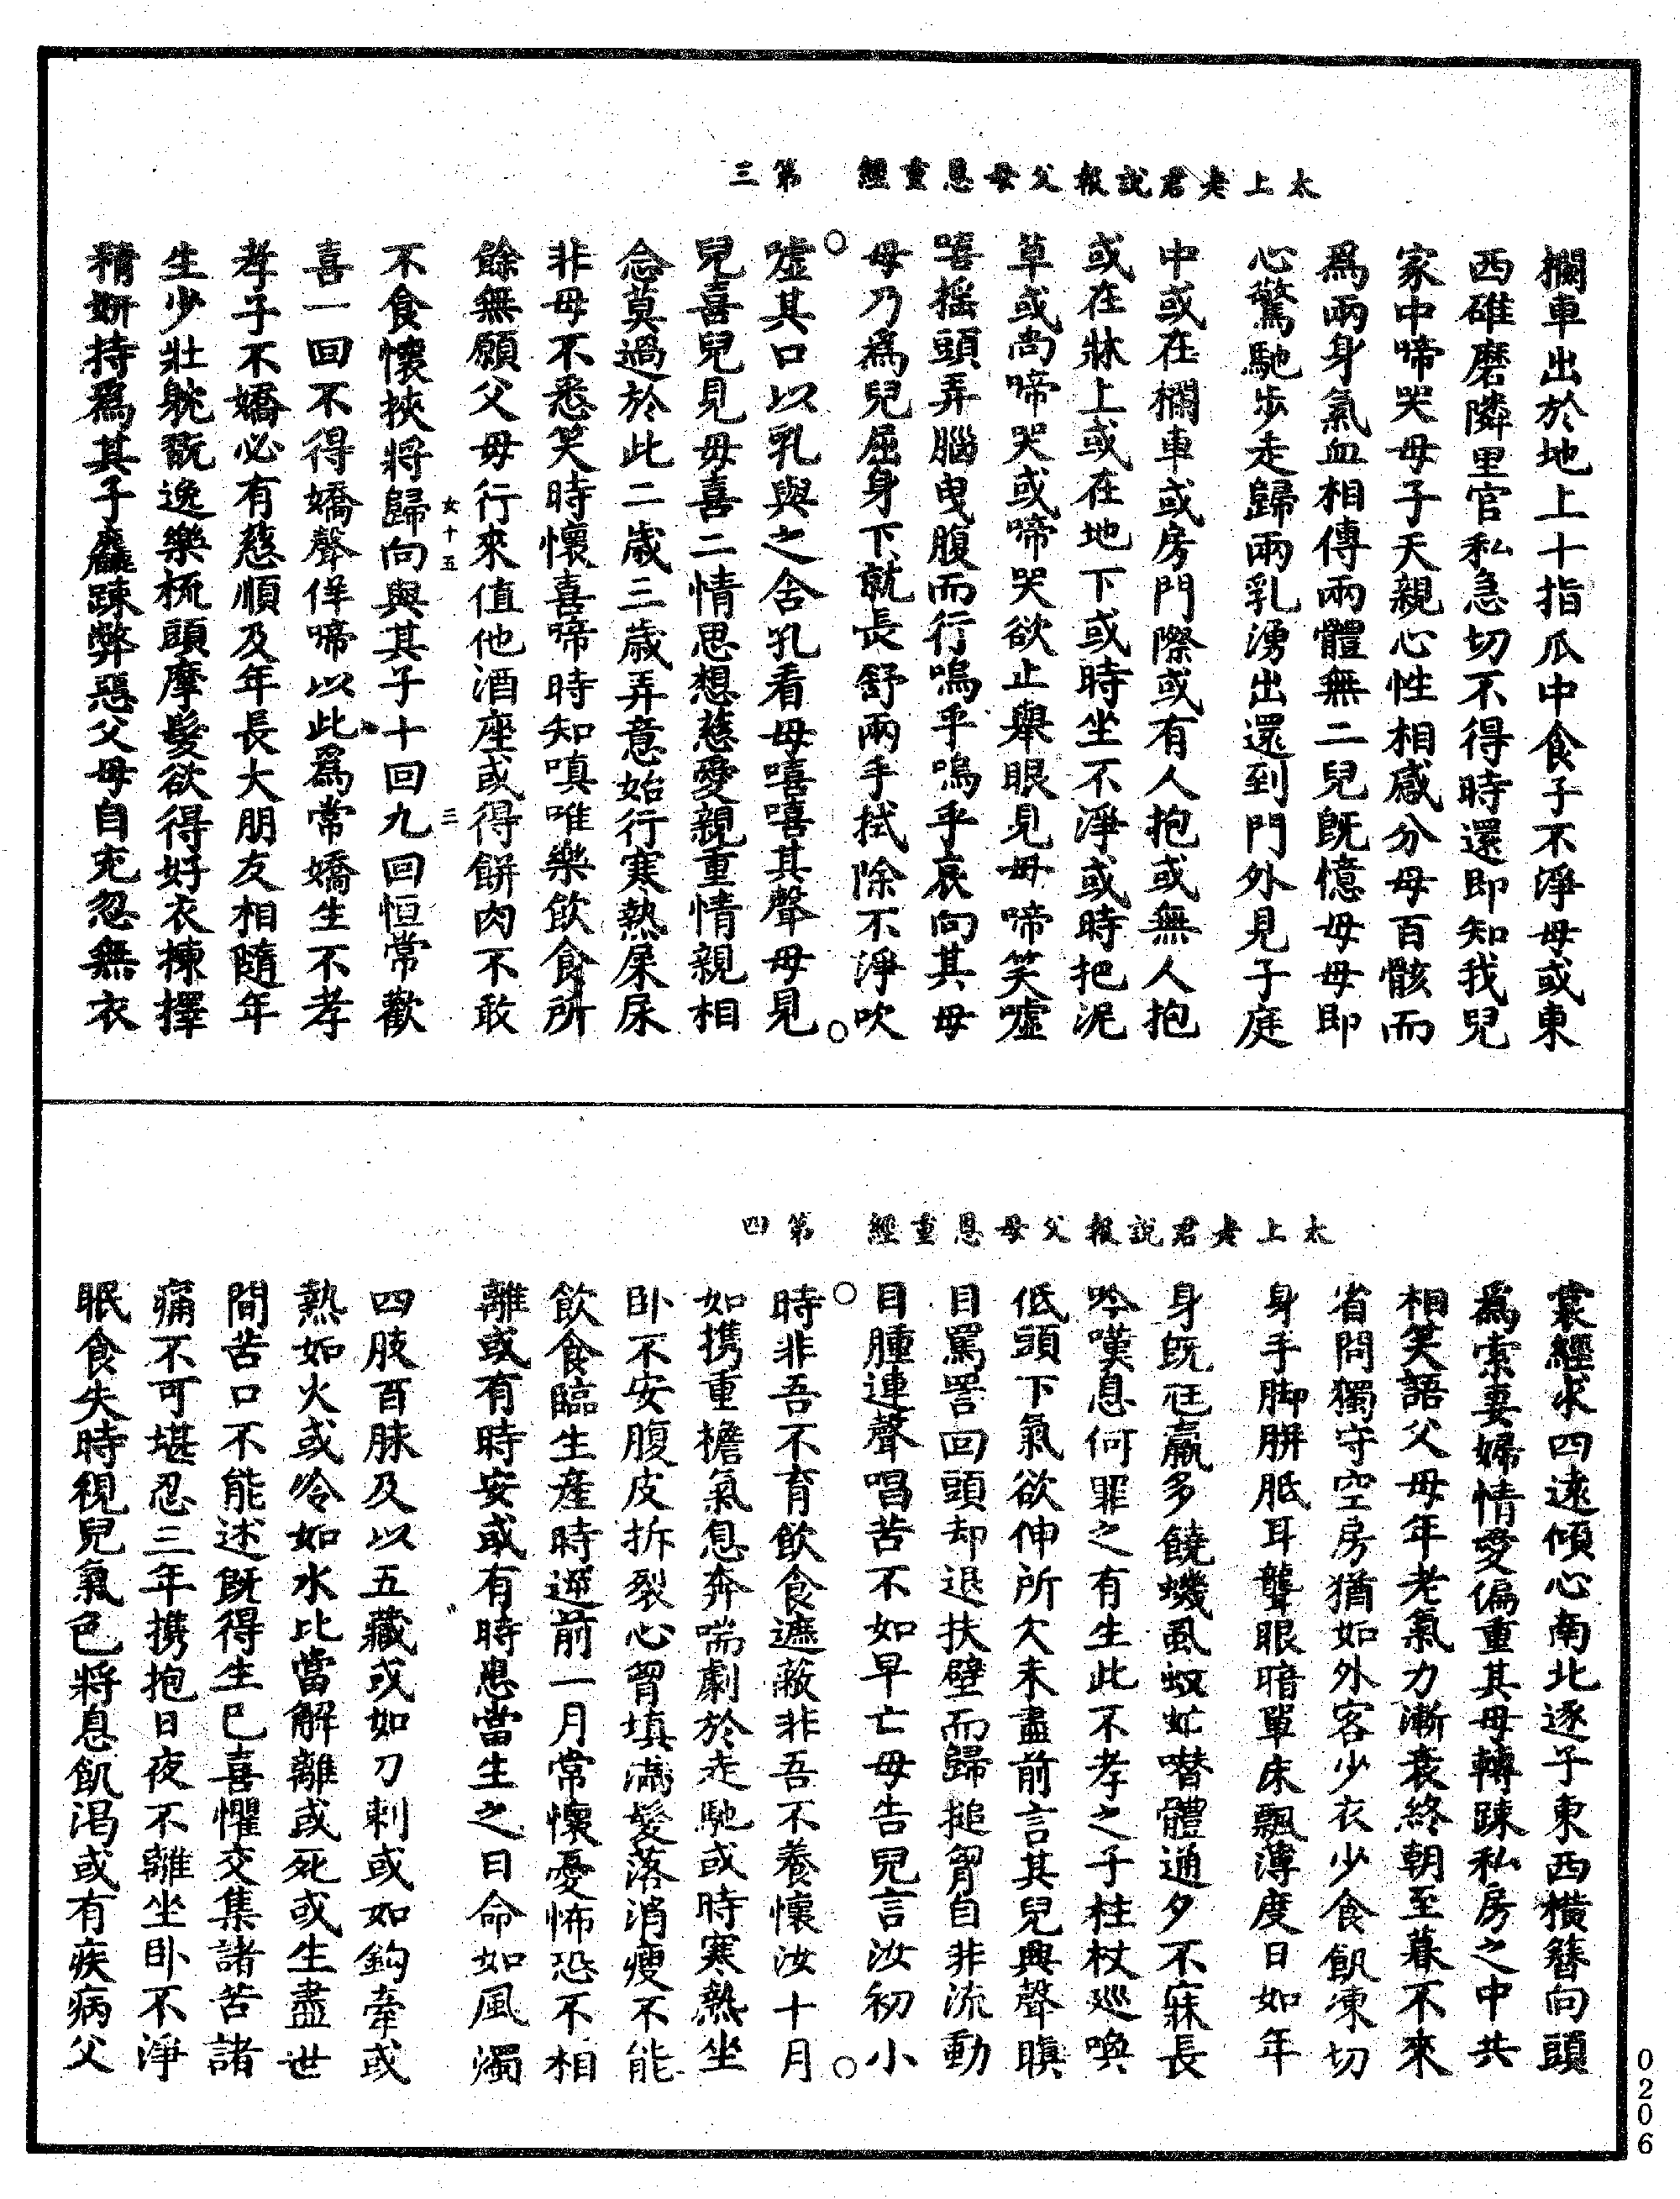 太上老君說報父母恩重經　第三
欄車出於地上十指爪中食子不淨母或東
西碓磨隣里官私急切不得時還即知我兒
家中啼哭母子天親心性相感分母百骸而
爲兩身氣血相傳兩體無二兒旣憶母母即
心驚馳步走歸兩乳湧出還到門外見子庭
中或在欄車或房門際或有人抱或無人抱
或在牀上或在地下或時坐不淨或時把泥
草或尚啼哭或啼哭欲止舉眼見母啼笑噓
嘻摇頭弄腦曳腹而行嗚乎嗚乎哀向其母
母乃爲兒屈身下就長舒兩手拭除不淨吹
噓其口以乳與之舍乳看母嘻嘻其聲母見
兒喜兒見母喜二情思想慈愛親重情親相
念莫過於此二歲三歲弄意始行寒熱屎尿
非母不悉笑時懷喜啼時知嗔唯樂飲食所
餘無願父母行來值他酒座或得餅肉不敢
女十五　三
不食懷挾將歸向與其子十回九回恒常歡
喜一回不得嬌聲佯啼以此爲常嬌生不孝
孝子不嬌必有慈順及年長大朋友相隨年
生少壯躭翫逸樂梳頭摩髮欲得好衣揀擇
精妍持爲其子麤踈弊惡父母自充忽無衣
太上老君說報父母恩重經　第四
裳經求四遠傾心南北逐子東西橫簪向頭
爲索妻婦情愛偏重其母轉踈私房之中共
相笑語父母年老氣力漸衰終朝至暮不來
省問獨守空房猶如外客少衣少食飢凍切
身手脚胼胝耳聾眼暗單床飄薄度日如年
身旣尫羸多饒蟣虱蚊虻噆體通夕不寐長
吟嘆息何罪之有生此不孝之子柱杖廵喚
低頭下氣欲伸所欠未盡前言其兒興聲瞋
目罵詈回頭却退扶壁而歸搥胷自非流動
目腫連聲唱苦不如早亡母告兒言汝初小
時非吾不育飲食遮蔽非吾不養懷汝十月
如携重擔氣息奔喘劇於走馳或時寒熱坐
卧不安腹皮拆裂心胷填滿髮落消瘦不能
飲食臨生產時逕前一月常懷憂怖恐不相
離或有時安或有時患當生之日命如風燭
四肢百脉及以五藏或如刀剌或如鈎牽或
熱如火或冷如水比當解離或死或生盡世
間苦口不能述旣得生已喜懼交集諸苦諸
痛不可堪忍三年携抱日夜不離坐卧不淨
眠食失時視兒氣色將息飢渴或有疾病父
0206